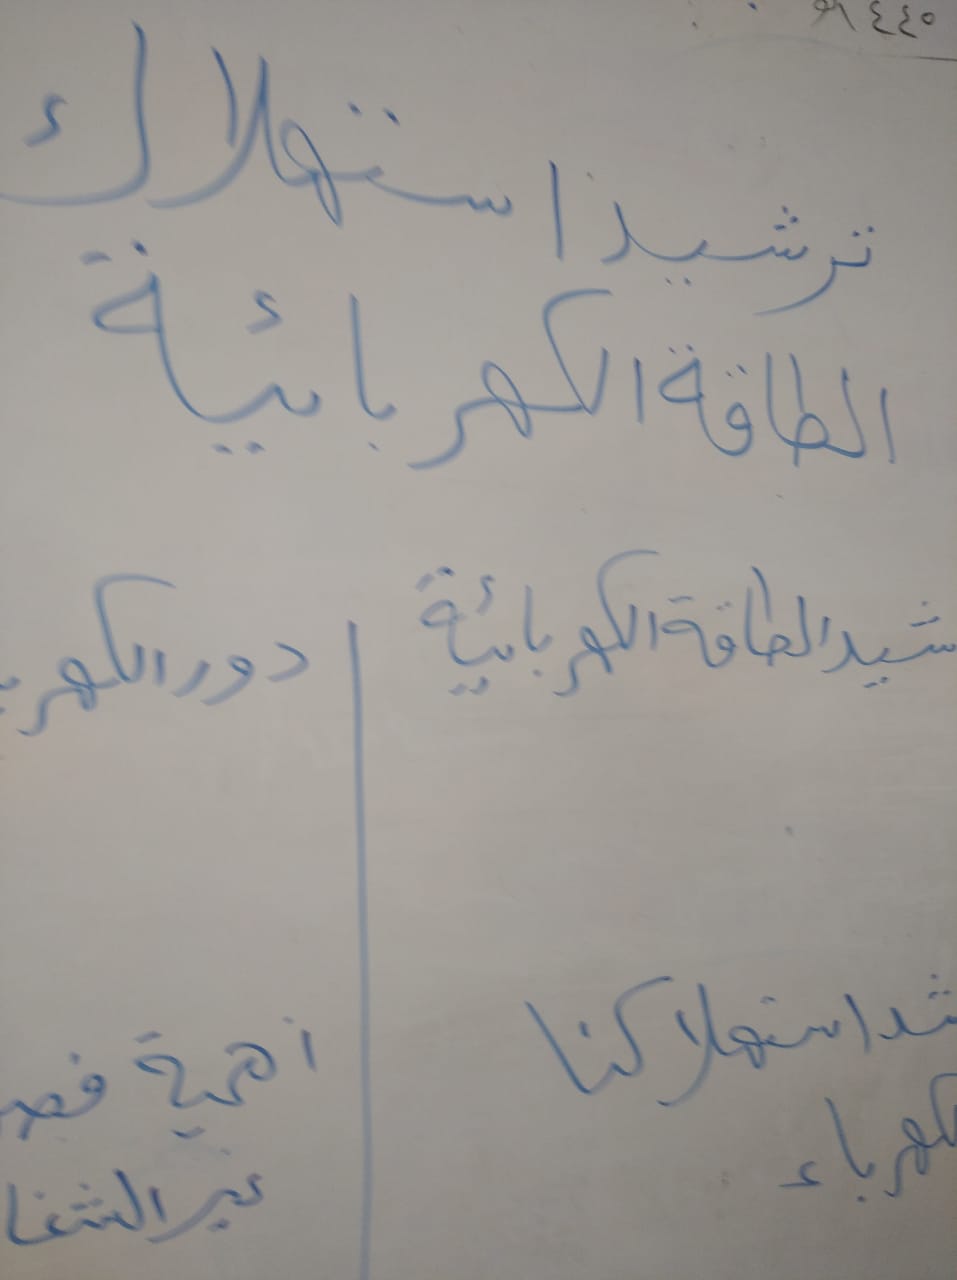 ٤٤٥
ترشيد استهلاك
الطاقة الكهربائية
شيد الطاقة الكهربائية
دور الكهرب
شد استهلاكنا
كهرباء
أهمية فصـ
غير الشغا